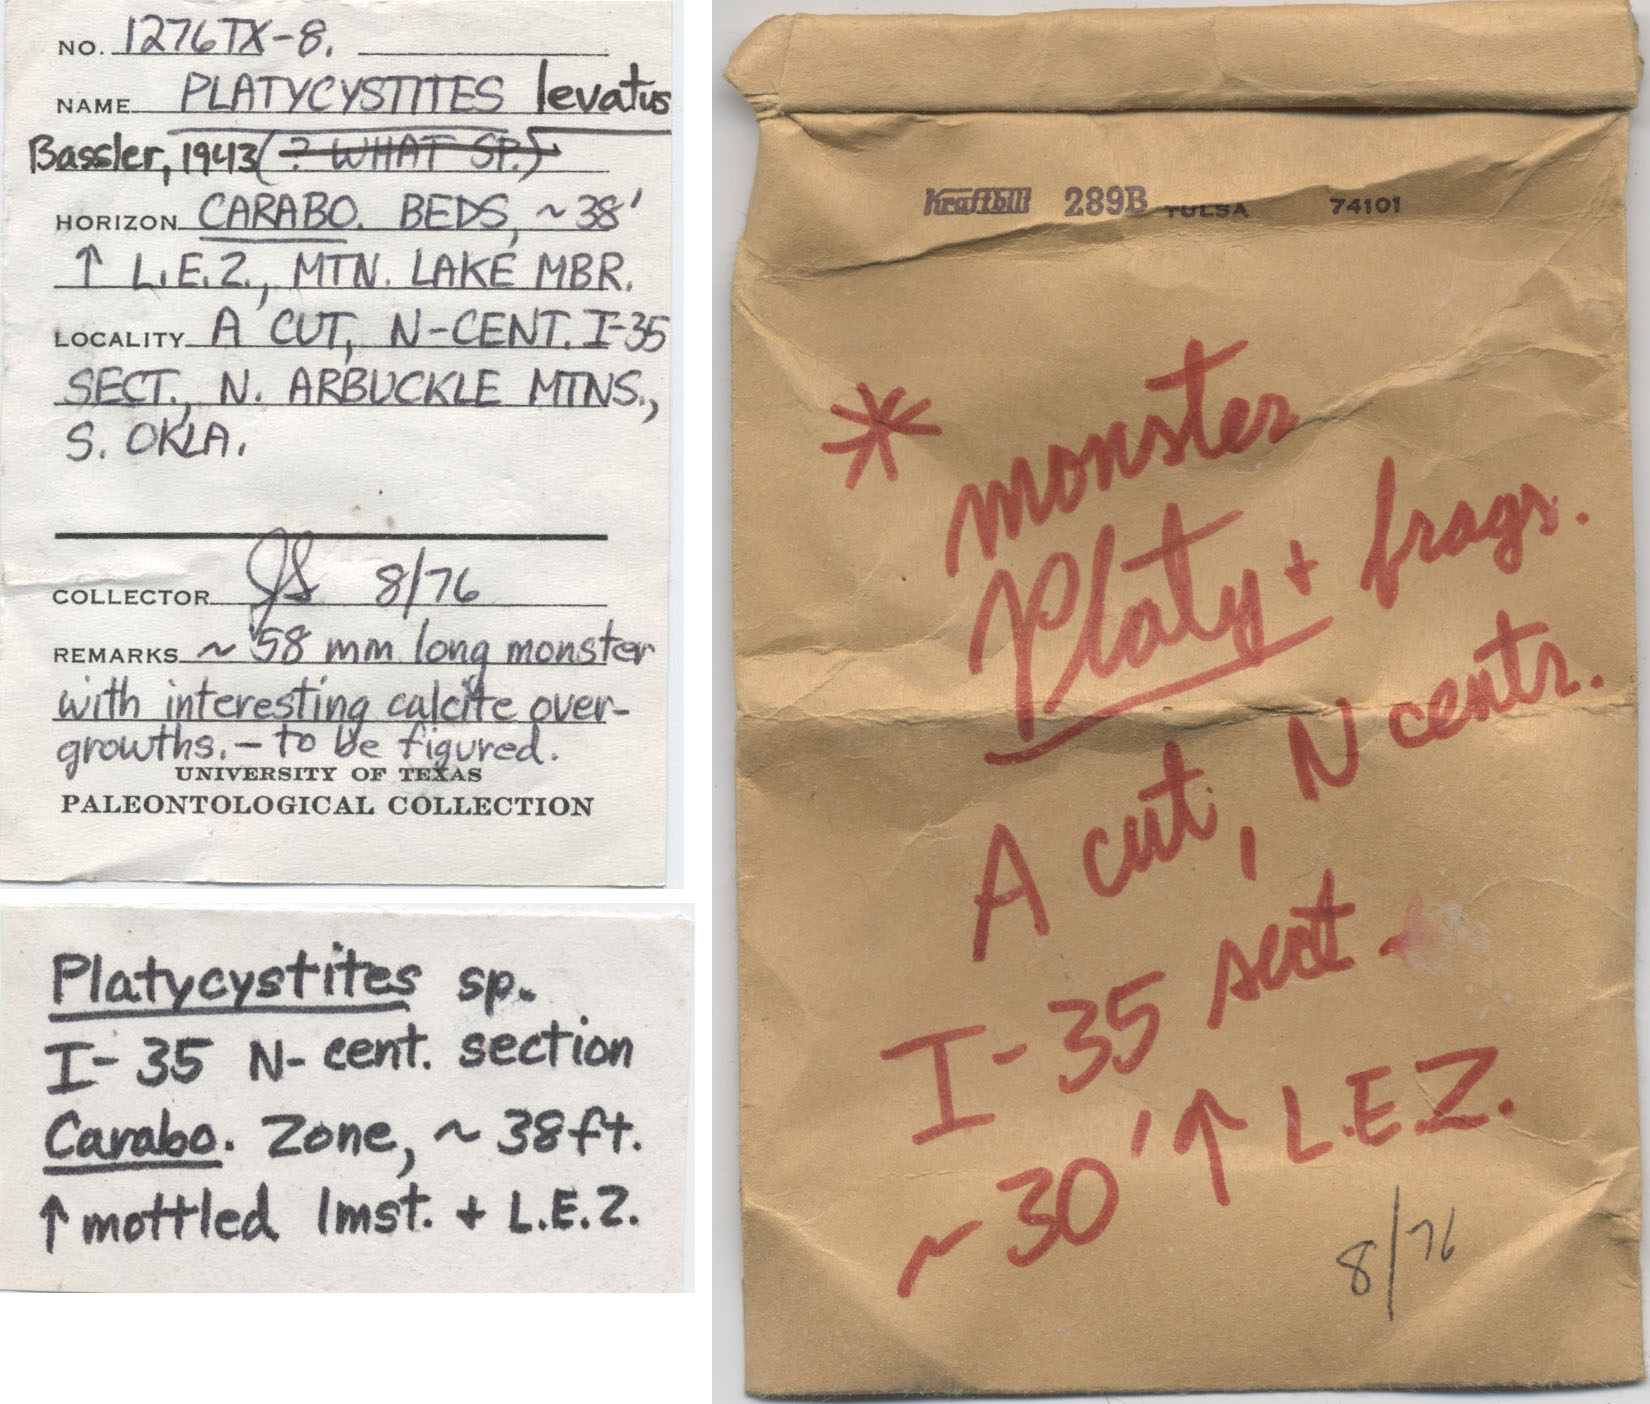 NO. 1276TX-8.
NAME PLATYCYSTITES levatus
Bassler, 1943 (? WHAT SP.)
HORIZON CARABO. BEDS, ~38'
↑ L.E.Z., MTN. LAKE MBR.
LOCALITY A CUT, N-CENT. I-35
SECT., N. ARBUCKLE MTNS.,
S. OKLA.
COLLECTOR JS 8/76
REMARKS ~58 mm long monster
with interesting calcite over-
growths. - to be figured.
UNIVERSITY OF TEXAS
PALEONTOLOGICAL COLLECTION
Platycystites sp.
I-35 N-cent. section
Carabo. Zone, ~38ft.
↑ mottled lmst. + L.E.Z.
Kraftbilt 289B TULSA 74101
* monster
Platy + frags.
A cut, N centr.
I-35 sect.
~30' ↑ L.E.Z.
8/76